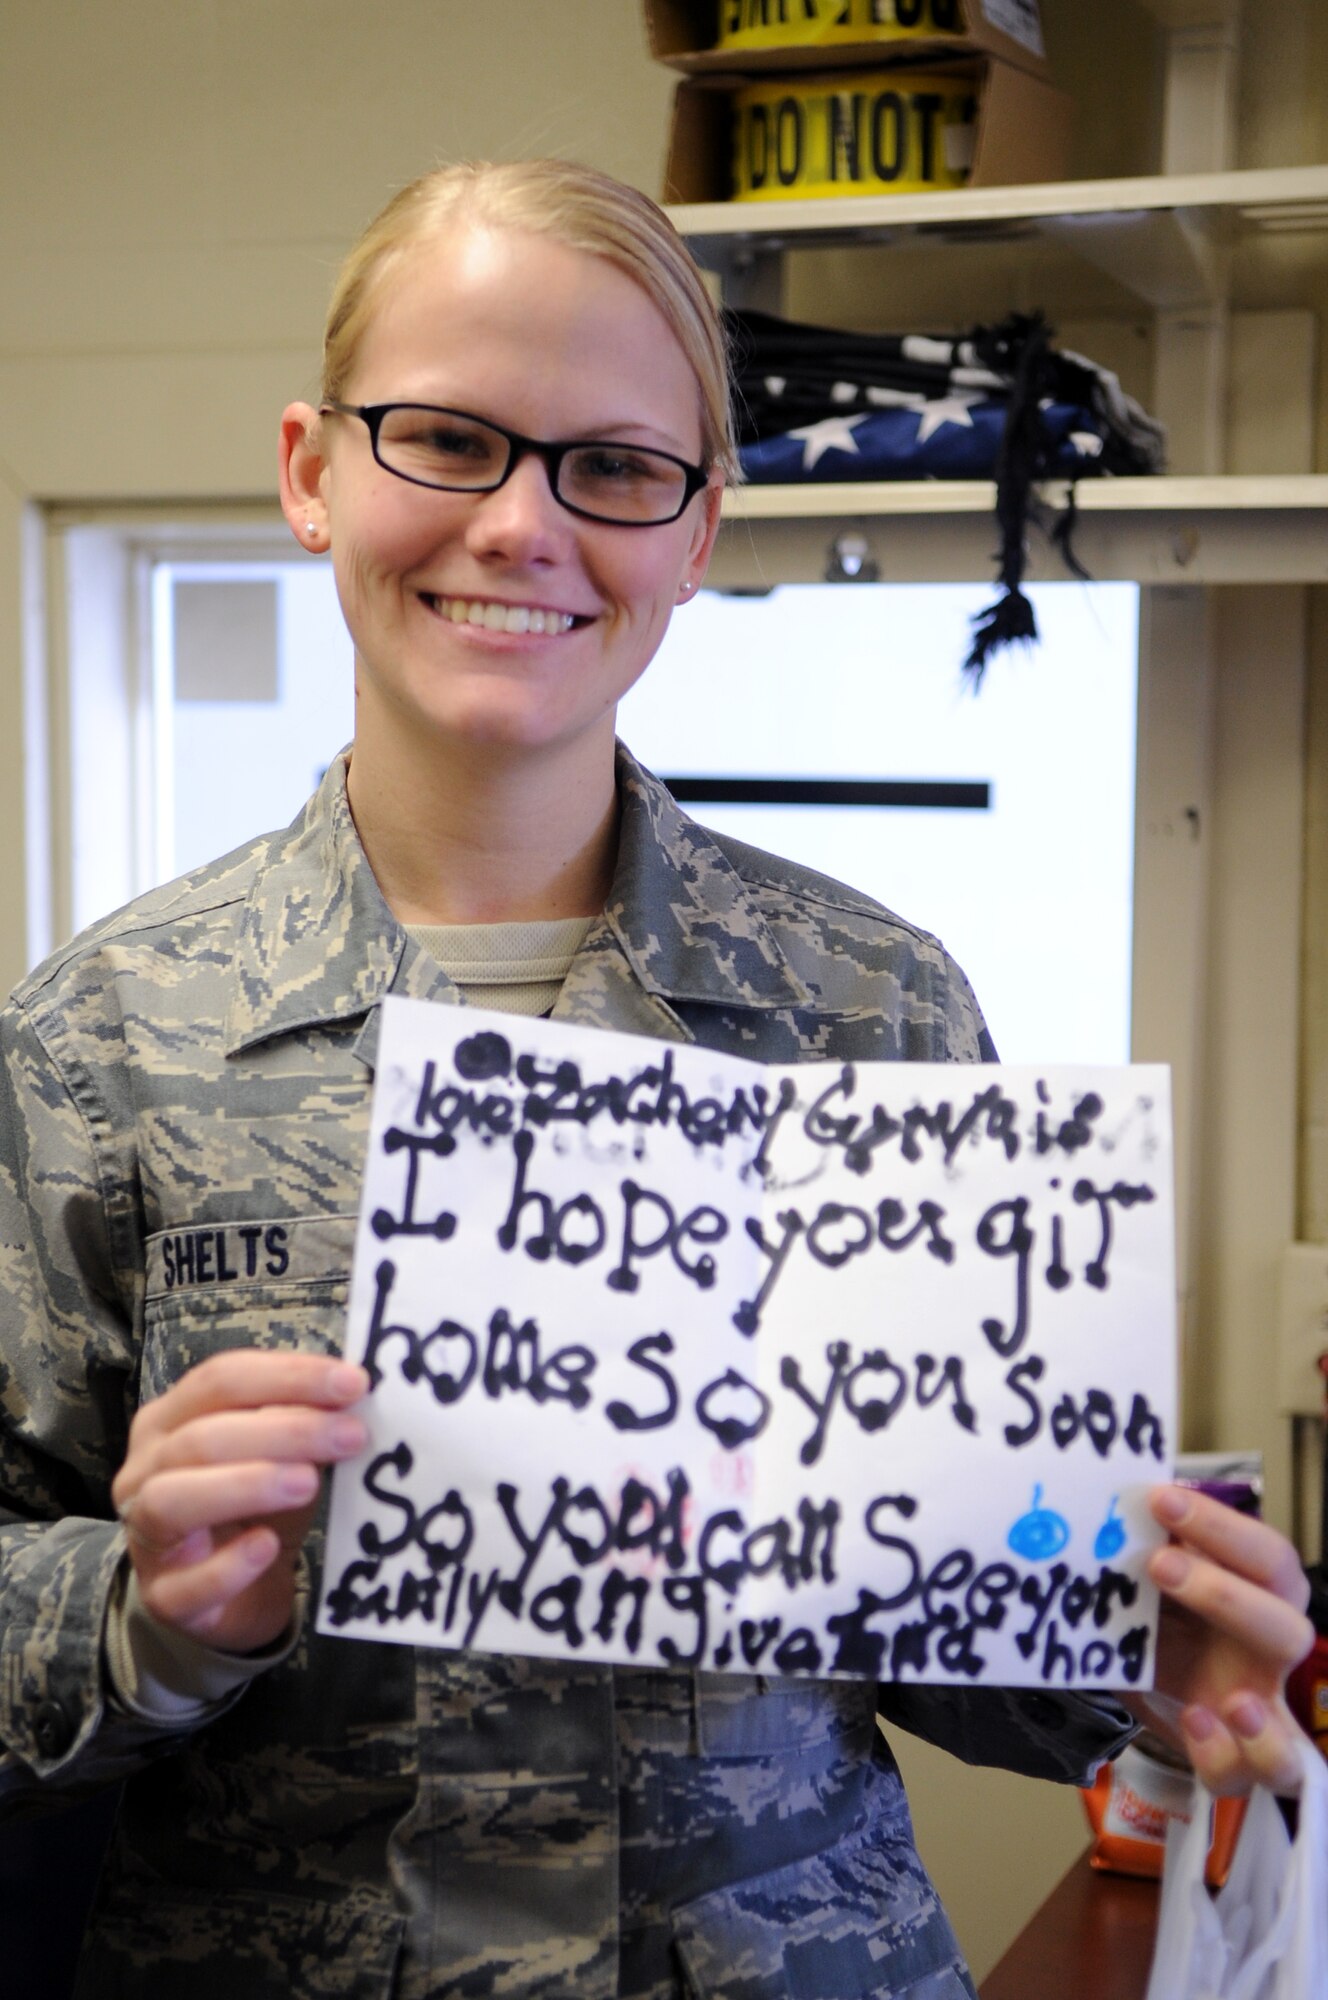 DO NOT
SHELTS
love Zachery Gervais
I hope you giT
home so you soon
So you can See yor
family ang ive them a hog